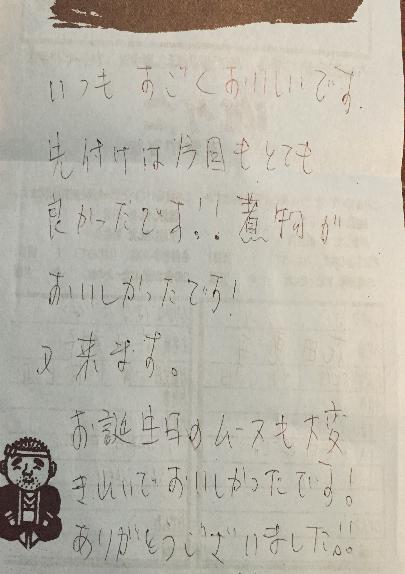 いつもすごくおいしいです.
先付けは今回もとても
良かったです!! 煮物が
おいしかったです!
又来ます。
お誕生日のムースも大変
きれいでおいしかったです!
ありがとうございました!!